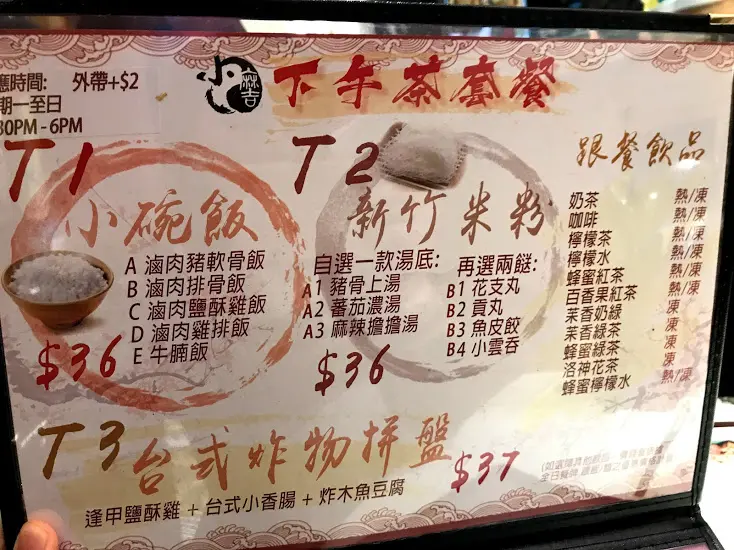 應時間: 外帶+$2
期一至日
30PM - 6PM
小林吉
下午茶套餐
T1
小碗飯
A 滷肉豬軟骨飯
B 滷肉排骨飯
C 滷肉鹽酥雞飯
D 滷肉雞排飯
E 牛腩飯
$36
T2
新竹米粉
自選一款湯底:
A1 豬骨上湯
A2 蕃茄濃湯
A3 麻辣擔擔湯
再選兩餸:
B1 花支丸
B2 貢丸
B3 魚皮餃
B4 小雲吞
$36
跟餐飲品
奶茶 熱/凍
咖啡 熱/凍
檸檬茶 熱/凍
檸檬水 熱/凍
蜂蜜紅茶 熱/凍
百香果紅茶 凍
茉香奶綠 凍
茉香綠茶 凍
蜂蜜綠茶 凍
洛神花茶 凍
蜂蜜檸檬水 熱/凍
T3 台式炸物拼盤 $37
逢甲鹽酥雞 + 台式小香腸 + 炸木魚豆腐